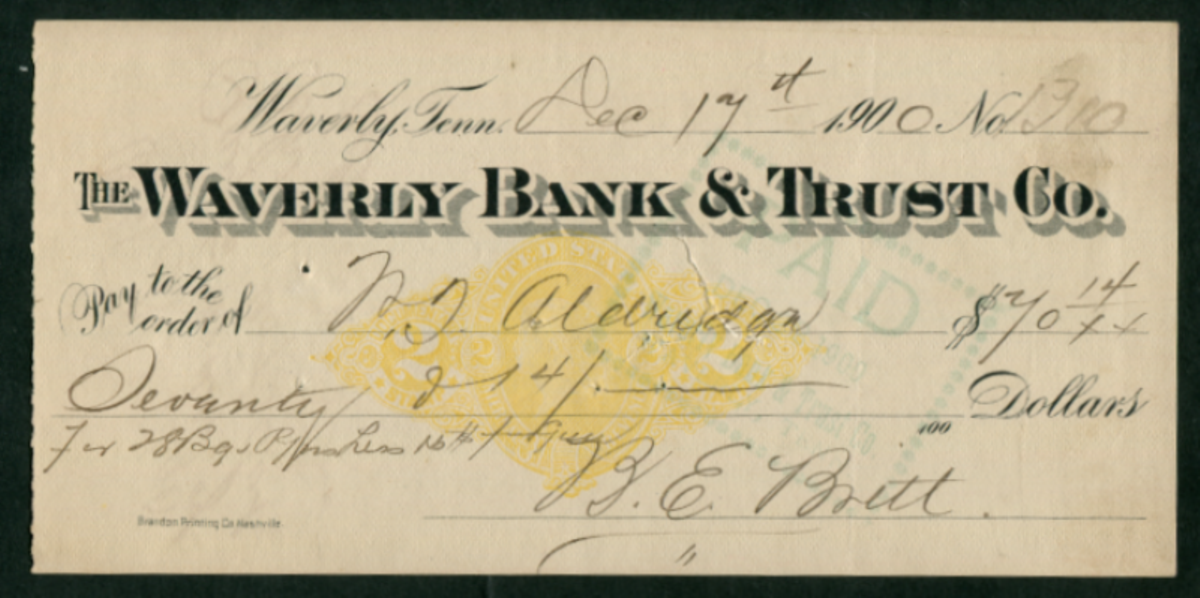 Waverly, Tenn. Dec 17th 1900 No. 1300
THE WAVERLY BANK & TRUST CO.
Pay to the order of W. D. Aldridge $70 14/xx
Seventy & 14/ Dollars
100
For 28 Bgs
B. E. Britt.
Brandon Printing Co. Nashville.
UNITED STA
2 2
PAID